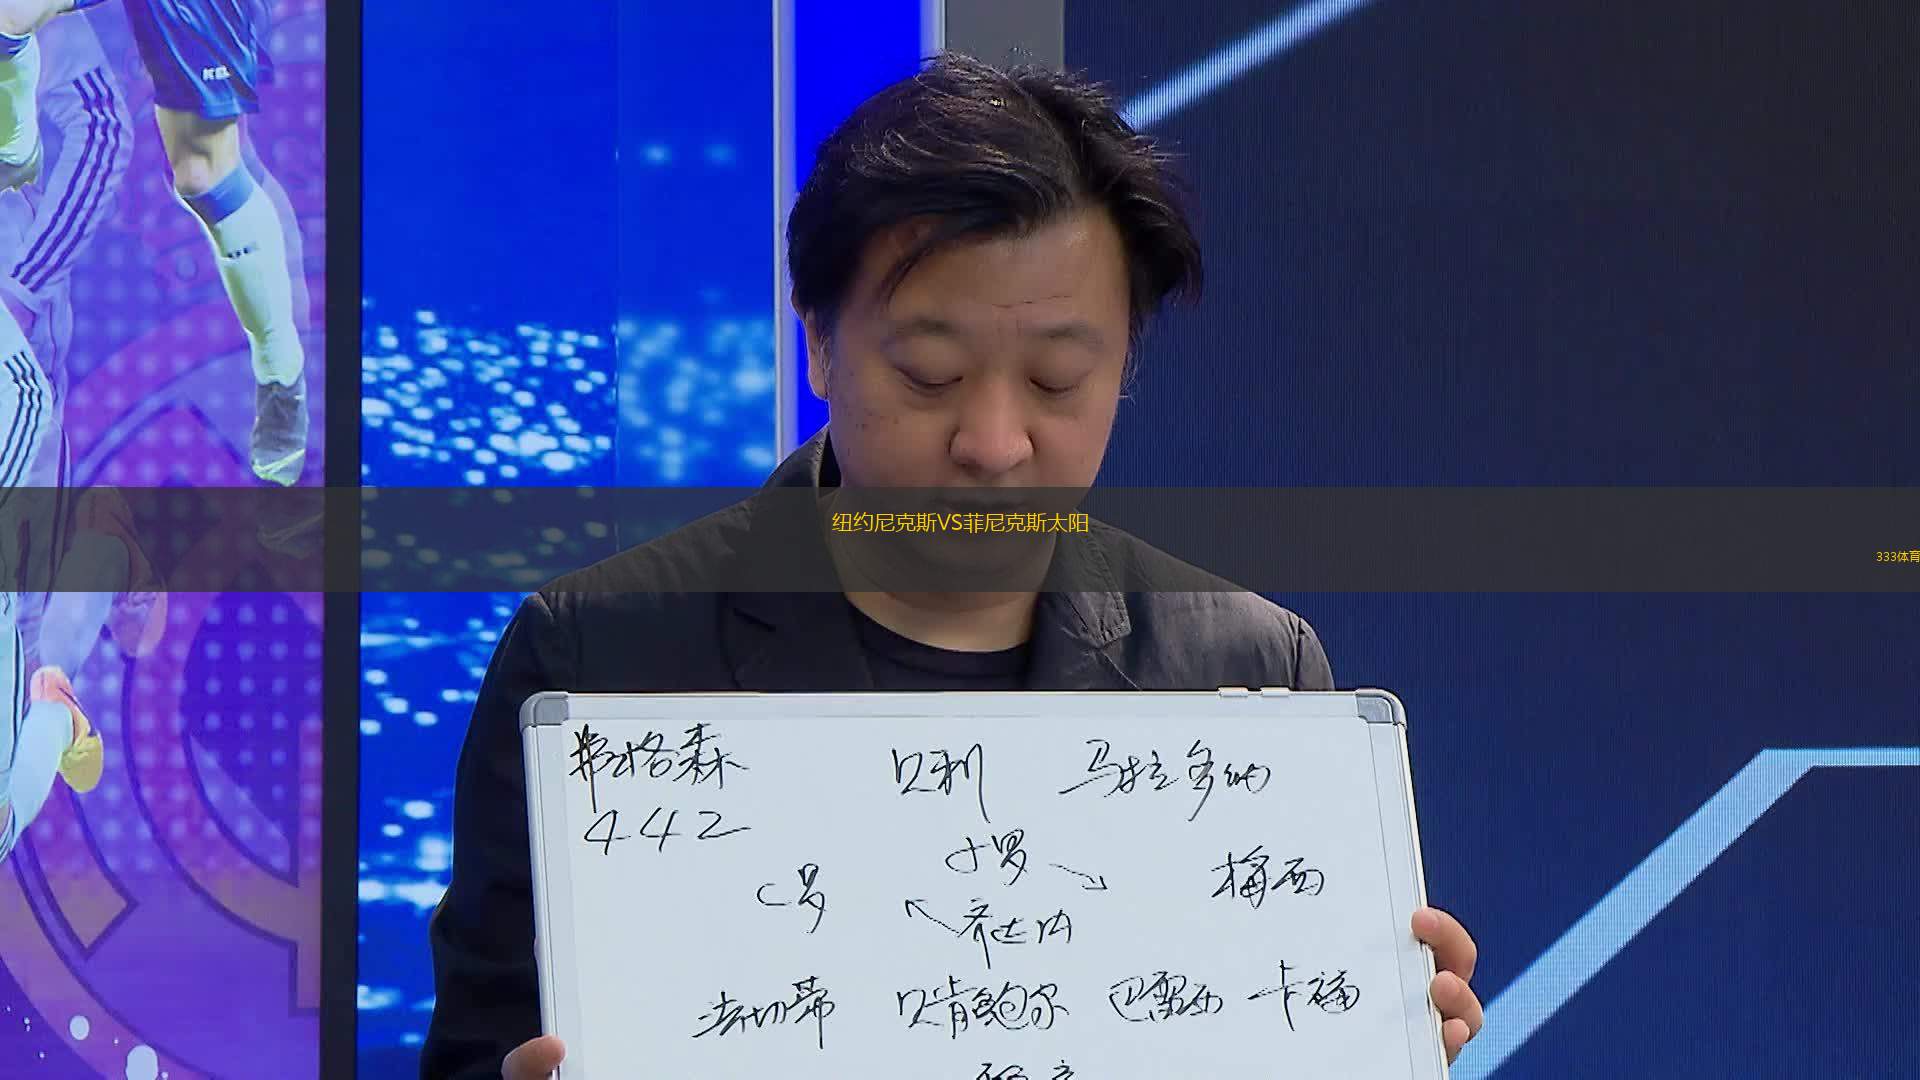 KEL
纽约尼克斯VS菲尼克斯太阳
333体育
弗格森 贝利 马拉多纳
442
小罗
C罗 梅西
齐达内
法切蒂 贝肯鲍尔 巴雷西 卡福